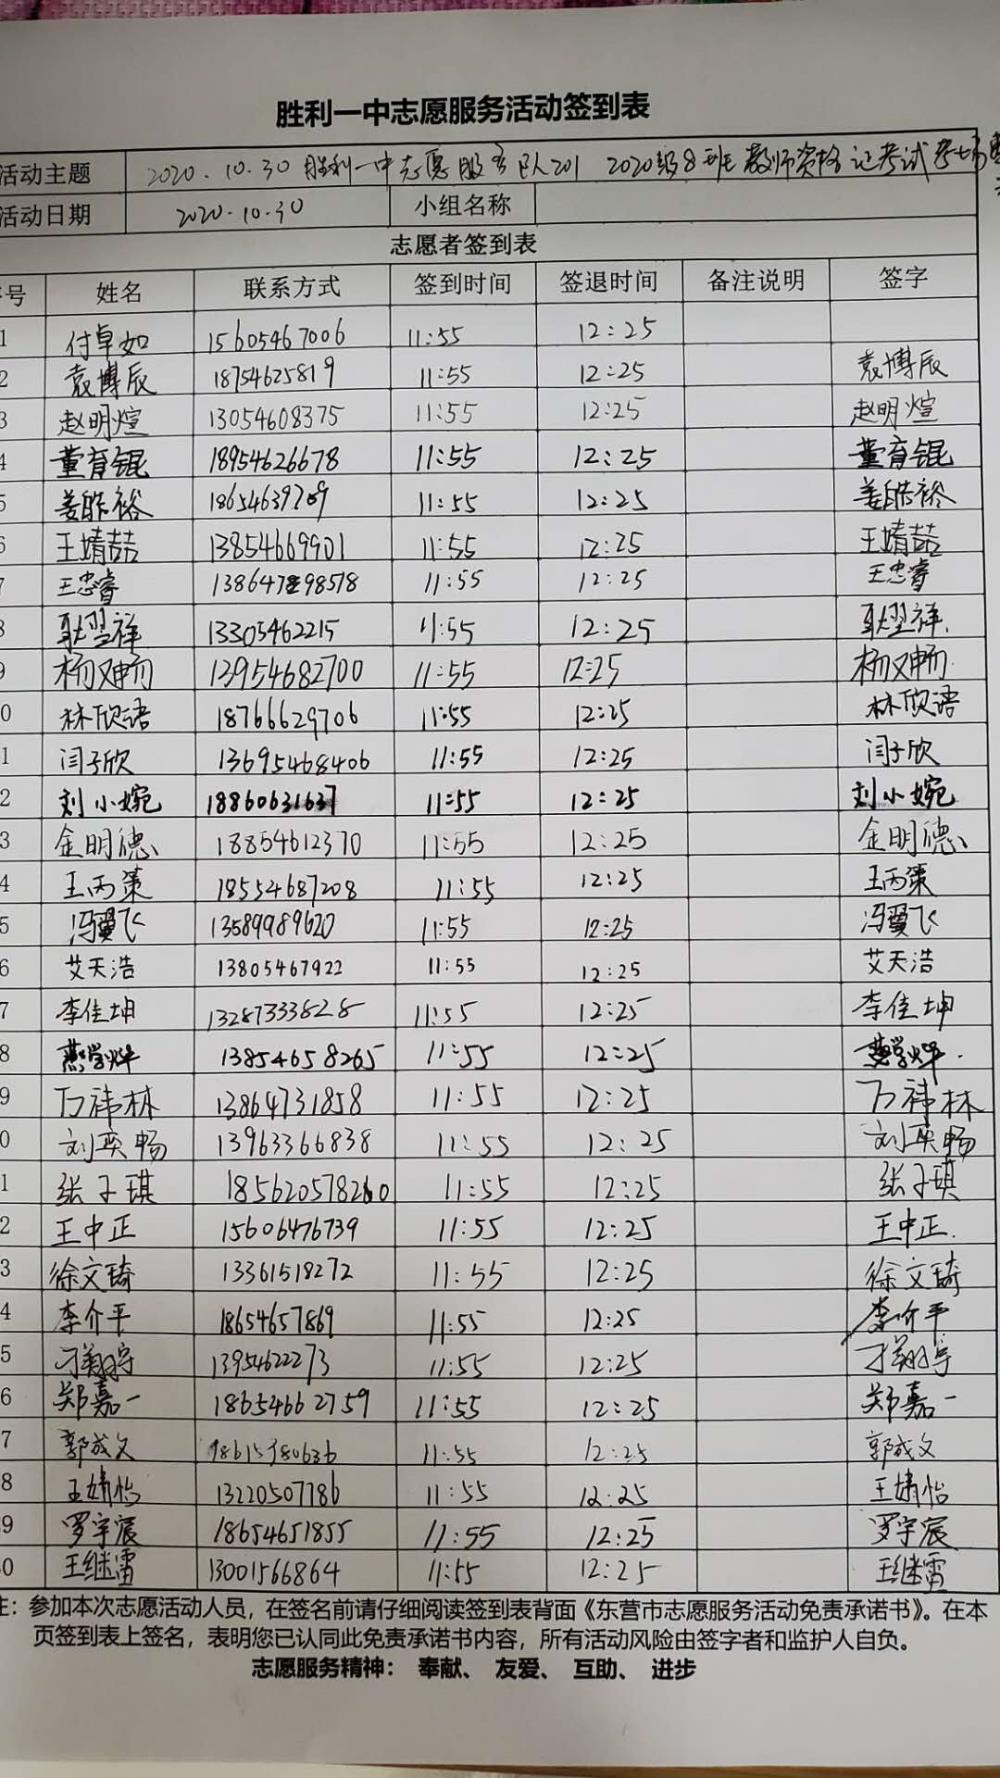 胜利一中志愿服务活动签到表
活动主题 2020.10.30 胜利一中志愿服务队201 2020级8班教师资格证考试考
活动日期 2020.10.30 小组名称
志愿者签到表
号 姓名 联系方式 签到时间 签退时间 备注说明 签字
1 付卓如 15605467006 11:55 12:25
2 袁博辰 18754625819 11:55 12:25 袁博辰
3 赵明煊 13054608375 11:55 12:25 赵明煊
4 董育锟 18954626678 11:55 12:25 董育锟
5 姜皓裕 11:55 12:25 姜皓裕
6 王婧喆 13854669901 11:55 12:25 王婧喆
7 王忠睿 11:55 12:25 王忠睿
8 耿翌祥 13305462215 11:55 12:25 耿翌祥.
9 杨又畅 13954682700 11:55 12:25 杨又畅.
0 林欣语 18766629706 11:55 12:25 林欣语
1 闫子欣 13695468406 11:55 12:25 闫子欣
2 刘小婉 11:55 12:25 刘小婉
3 金明德 18854612370 11:55 12:25 金明德
4 王丙策 18554687208 11:55 12:25 王丙策
5 冯翼飞 13589989620 11:55 12:25 冯翼飞
6 艾天浩 13805467922 11:55 12:25 艾天浩
7 李佳坤 13287333828 11:55 12:25 李佳坤
8 燕学烨 13854658265 11:55 12:25 燕学烨.
9 万祎林 13864731858 11:55 12:25 万祎林
0 刘奕畅 13963366838 11:55 12:25 刘奕畅
1 张子琪 11:55 12:25 张子琪
2 王中正 15606476739 11:55 12:25 王中正.
3 徐文琦 13361518272 11:55 12:25 徐文琦
4 李介平 18654657869 11:55 12:25 李介平
5 刁翔宇 13954622273 11:55 12:25 刁翔宇
6 郑嘉一 18654662759 11:55 12:25 郑嘉一
7 郭成文 18615380636 11:55 12:25 郭成文
8 王婧怡 13220507786 11:55 12:25 王婧怡
9 罗宇宸 18654651855 11:55 12:25 罗宇宸
0 王继雷 13001566864 11:55 12:25 王继雷
注：参加本次志愿活动人员，在签名前请仔细阅读签到表背面《东营市志愿服务活动免责承诺书》。在本
页签到表上签名，表明您已认同此免责承诺书内容，所有活动风险由签字者和监护人自负。
志愿服务精神： 奉献、 友爱、 互助、 进步